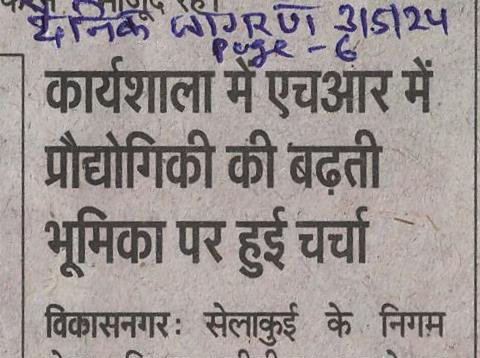 मौजूद रहे।
दैनिक जागरण 3/5/24
Page - 6
कार्यशाला में एचआर में
प्रौद्योगिकी की बढ़ती
भूमिका पर हुई चर्चा
विकासनगर: सेलाकुई के निगम